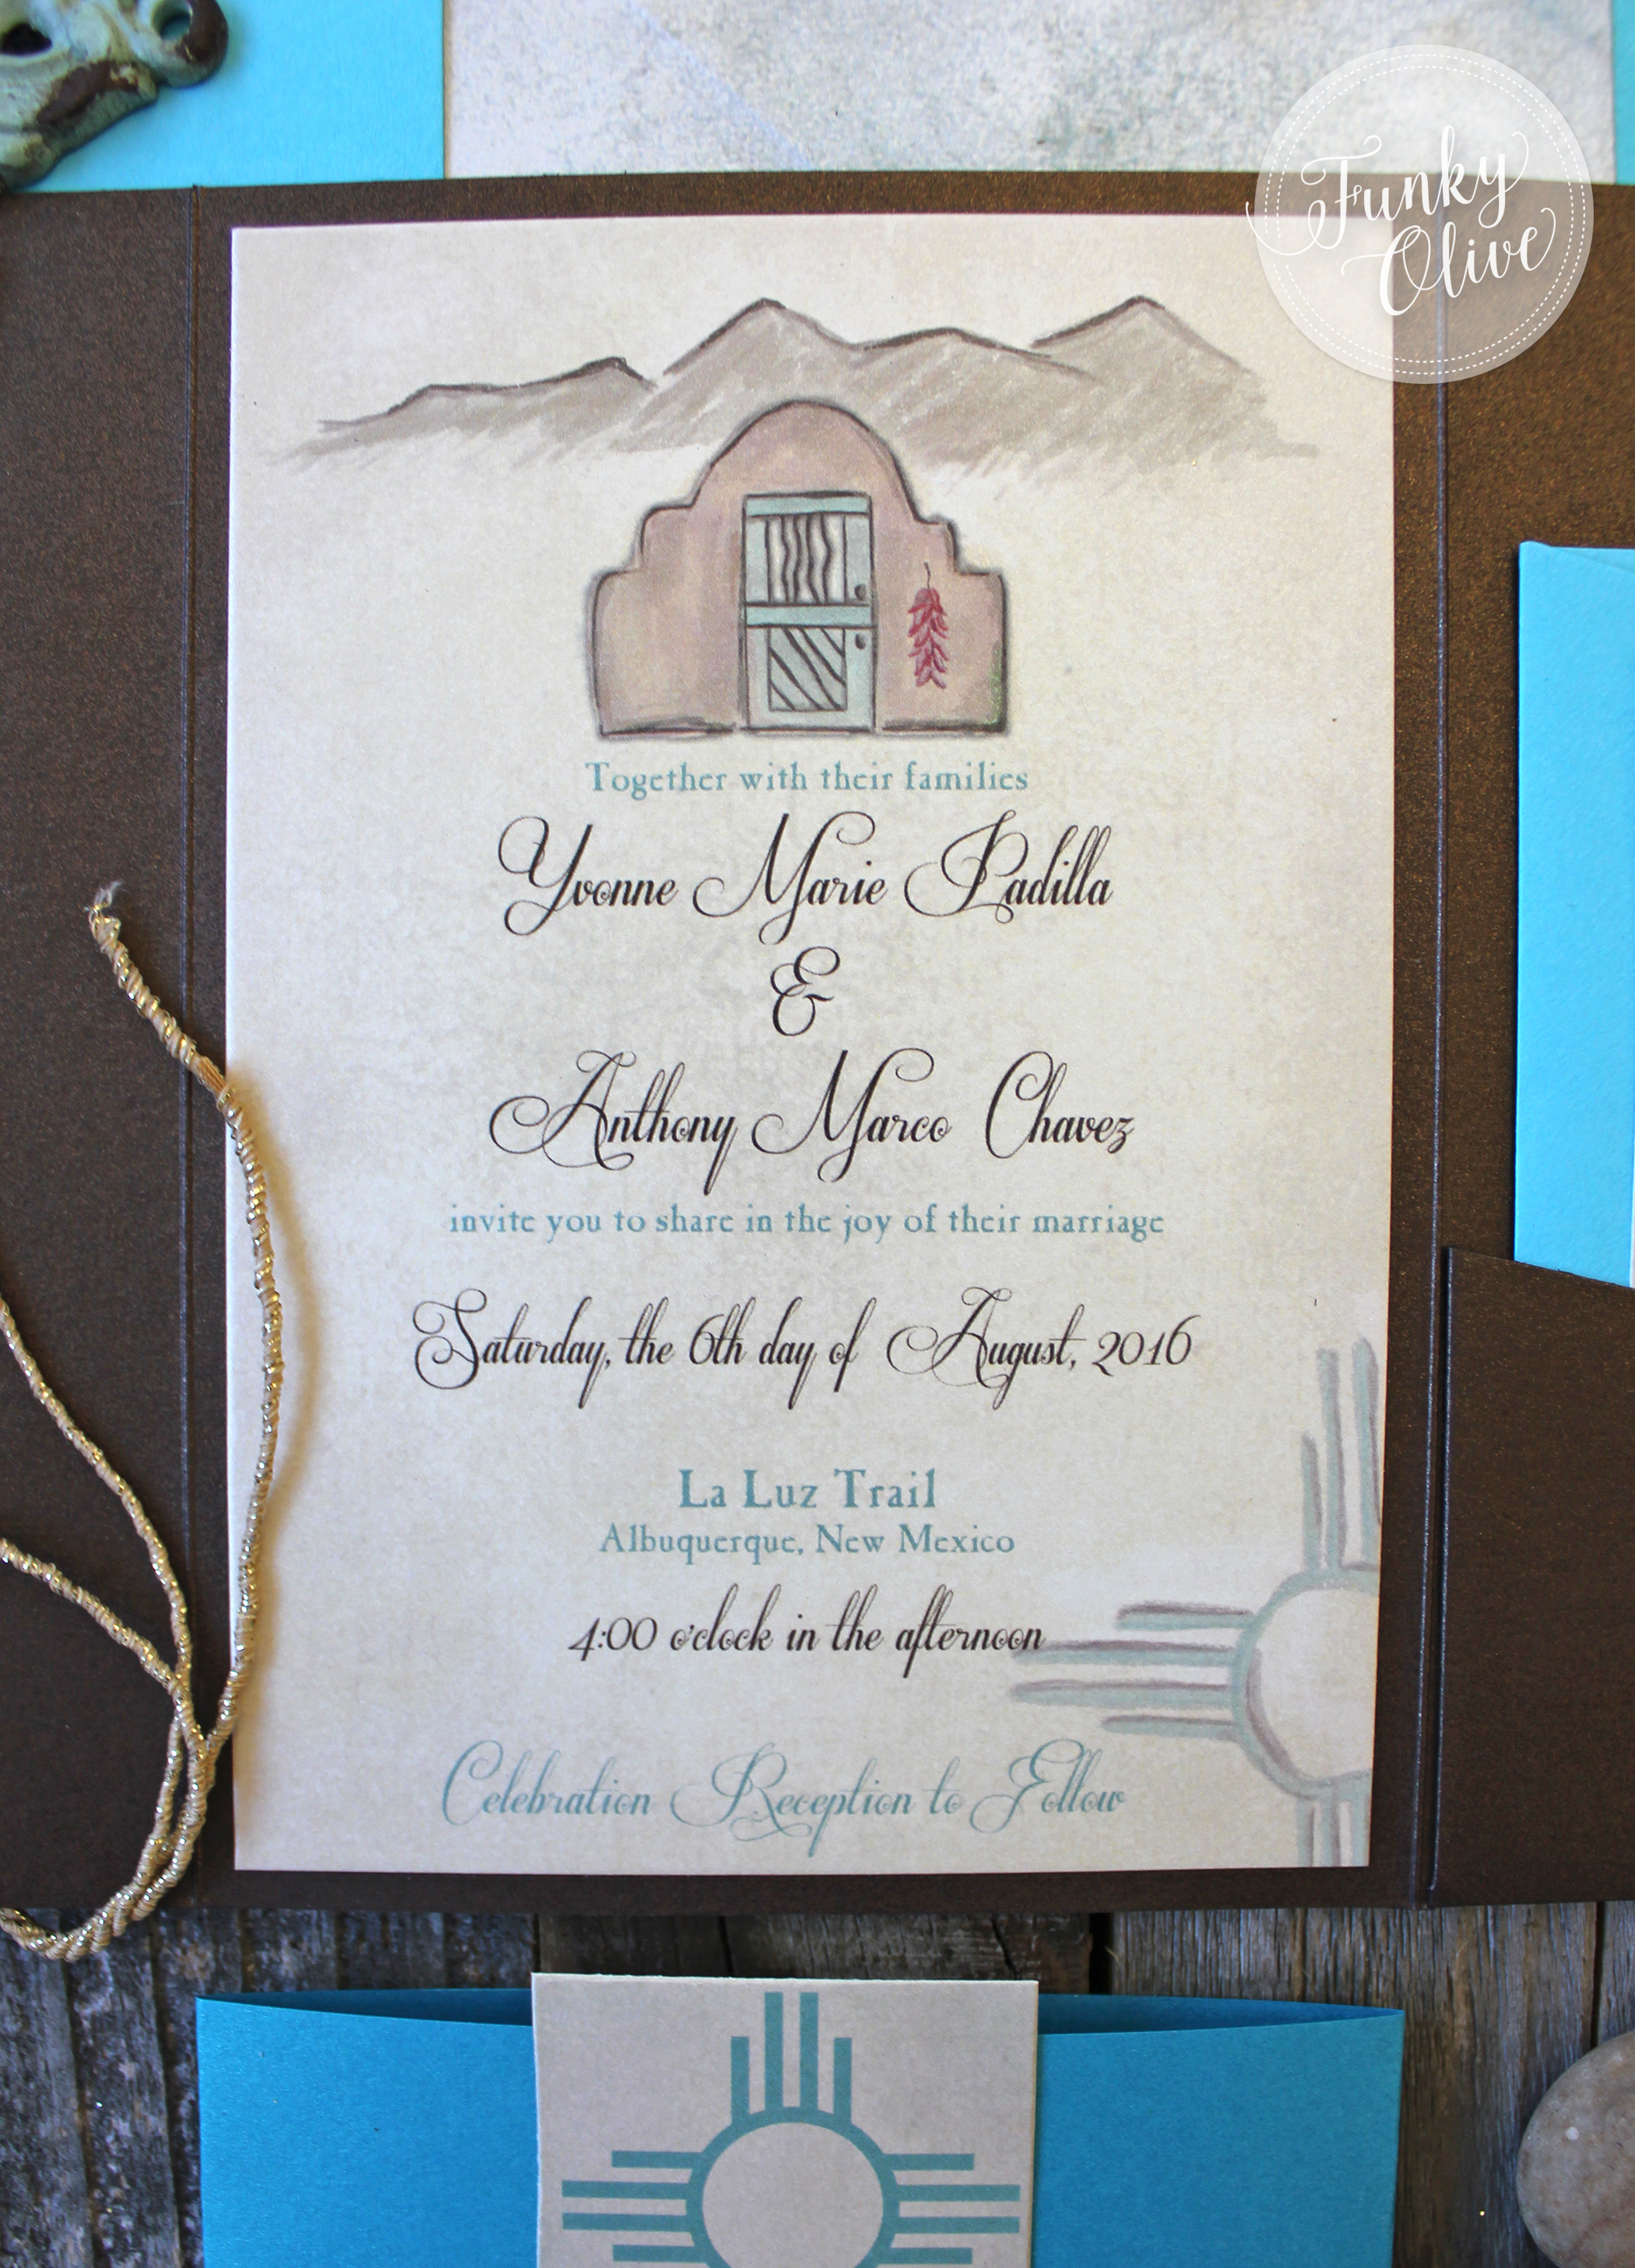 Funky
Olive
Together with their families
Yvonne Marie Padilla
&
Anthony Marco Chavez
invite you to share in the joy of their marriage
Saturday, the 6th day of August, 2016
La Luz Trail
Albuquerque, New Mexico
4:00 o'clock in the afternoon
Celebration Reception to Follow